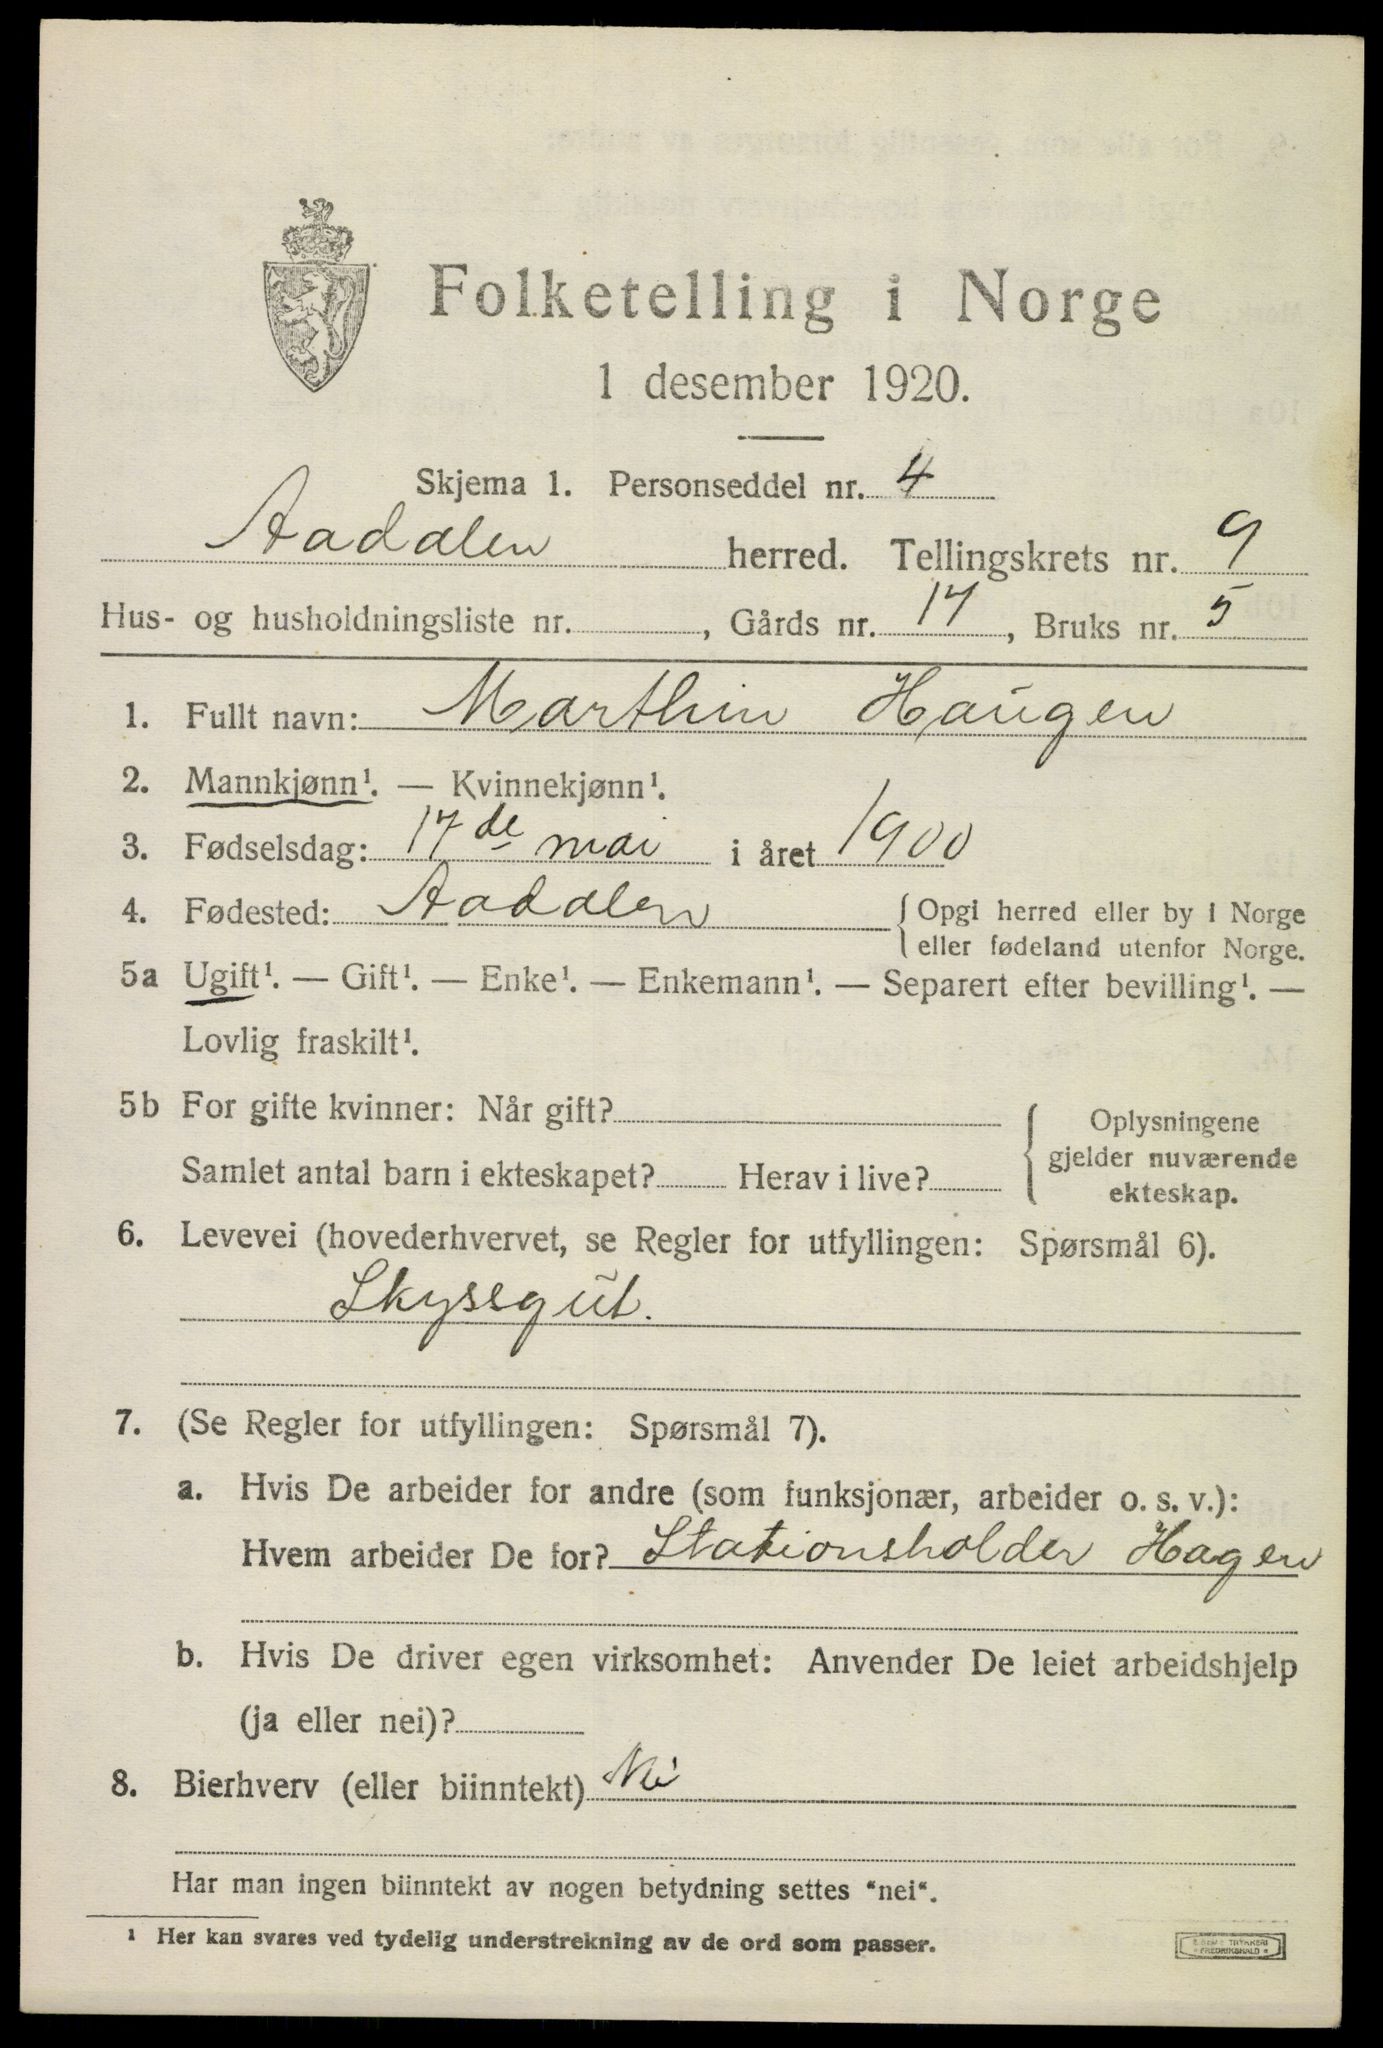 Folketelling i Norge
1 desember 1920.
Skjema 1. Personseddel nr. 4
Aadalen herred. Tellingskrets nr. 9
Hus- og husholdningsliste nr. , Gårds nr. 17, Bruks nr. 5
1. Fullt navn: Marthin Haugen
2. Mannkjønn¹. — Kvinnekjønn¹.
3. Fødselsdag: 17de mai i året 1900
4. Fødested: Aadalen { Opgi herred eller by i Norge
eller fødeland utenfor Norge.
5a Ugift¹. — Gift¹. — Enke¹. — Enkemann¹. — Separert efter bevilling¹. —
Lovlig fraskilt¹.
5b For gifte kvinner: Når gift? { Oplysningene
gjelder nuværende
ekteskap.
Samlet antal barn i ekteskapet? Herav i live?
6. Levevei (hovederhvervet, se Regler for utfyllingen: Spørsmål 6).
Skyssgut.
7. (Se Regler for utfyllingen: Spørsmål 7).
a. Hvis De arbeider for andre (som funksjonær, arbeider o. s. v.):
Hvem arbeider De for? Stationsholder Hagen
b. Hvis De driver egen virksomhet: Anvender De leiet arbeidshjelp
(ja eller nei)?
8. Bierhverv (eller biinntekt) Nei
Har man ingen biinntekt av nogen betydning settes "nei".
¹ Her kan svares ved tydelig understrekning av de ord som passer.
TRYKKERI
FREDRIKSHALD